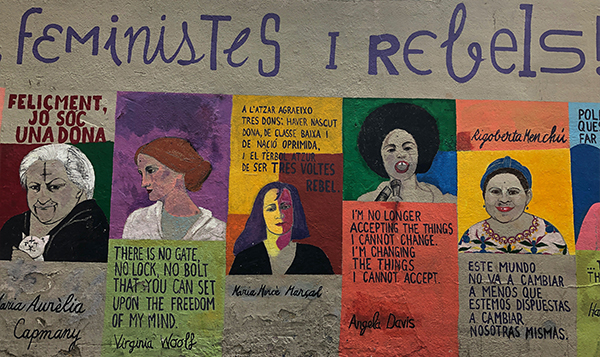 FEMINISTES I REBELS!
FELIÇMENT,
JO SÓC
UNA DONA
Maria Aurèlia
Capmany
THERE IS NO GATE,
NO LOCK, NO BOLT
THAT YOU CAN SET
UPON THE FREEDOM
OF MY MIND.
Virginia Woolf
A L'ATZAR AGRAEIXO
TRES DONS: HAVER NASCUT
DONA, DE CLASSE BAIXA I
DE NACIÓ OPRIMIDA,
I EL TÈRBOL ATZUR
DE SER TRES VOLTES
REBEL.
Maria Mercè Marçal
I'M NO LONGER
ACCEPTING THE THINGS
I CANNOT CHANGE.
I'M CHANGING
THE THINGS
I CANNOT ACCEPT.
Angela Davis
Rigoberta Menchú
ESTE MUNDO
NO VA A CAMBIAR
A MENOS QUE
ESTEMOS DISPUESTAS
A CAMBIAR
NOSOTRAS MISMAS.
QUE
FAR